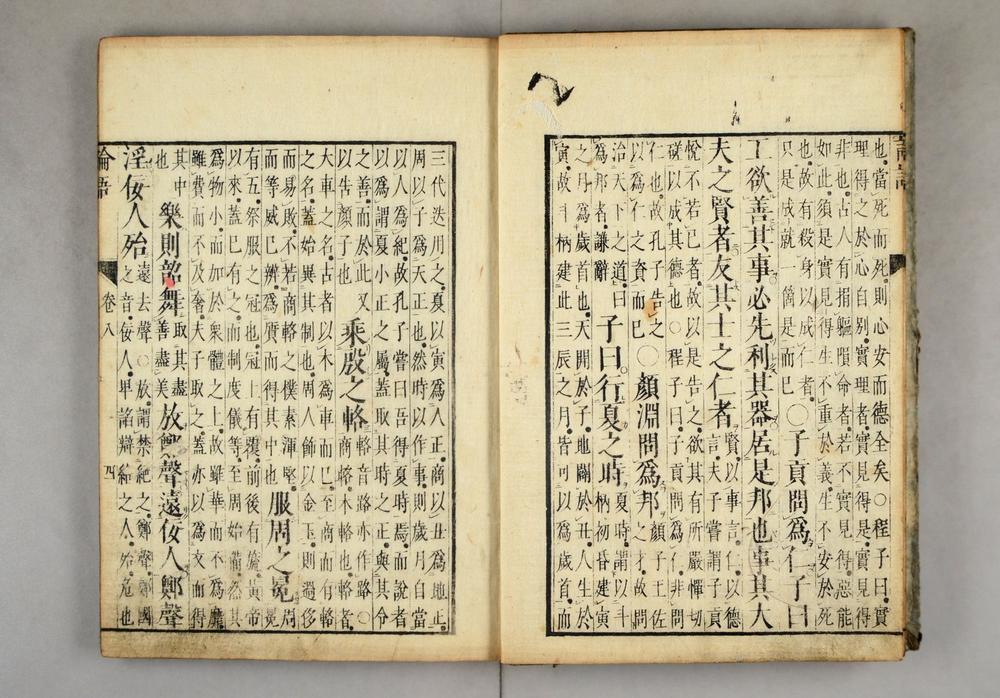 論語
也。當死而死。則心安而德全矣。○程子曰。實
理得之於心自別。實理者。實見得是。實見得
非也。古人有捐軀隕命者。若不實見得。惡能
如此。須是實見得生不重於義。生不安於死
也。故有殺身以成仁者。
只是成就一箇是而已
○子貢問爲仁子曰
工欲善其事必先利其器居是邦也事其大
夫之賢者友其士之仁者
賢。以事言。仁。以德
言。夫子嘗謂子貢
悅不若己者。故以是告之。欲其有所嚴憚切
磋以成其德也○程子曰。子貢問爲仁。非問
仁也。故孔子告之
以爲仁之資而已
○顏淵問爲邦
顏子王佐
之才。故問
治天下之道。曰
爲邦者。謙辭
子曰行夏之時
夏時。謂以斗
柄初昏建寅
之月。爲歲首也。天開於子。地闢於丑。人生於
寅。故斗柄建此三辰之月。皆可以爲歲首。而
三代迭用之。夏以寅爲人正。商以丑爲地正。
周以子爲天正也。然時以作事。則歲月自當
以人爲紀。故孔子嘗曰吾得夏時焉。而說者
以爲謂夏小正之屬。蓋取其時之正。與其令
之善。而於此又
以告顏子也
乘殷之輅
輅音路亦作路○
商輅。木輅也。輅者
大車之名。古者以木爲車而已。至商而有輅
之名。蓋始異其制也。周人飾以金玉。則過侈
而易敗。不若商輅之樸素渾堅。
而等威已辨。爲質而得其中也
服周之冕
周
冕
有五。祭服之冠也。冠上有覆。前後有旒。黃帝
以來。蓋已有之。而制度儀等。至周始備。然其
爲物小。而加於衆體之上。故雖華而不爲靡。
雖費而不及奢。夫子取之。蓋亦以爲文而得
其中
也
樂則韶舞
取其盡
善盡美
放鄭聲遠佞人鄭聲
淫佞人殆
遠去聲○放。謂禁絕之。鄭聲。鄭國
之音。佞人。卑諂辯給之人。殆。危也
論語
卷八
四